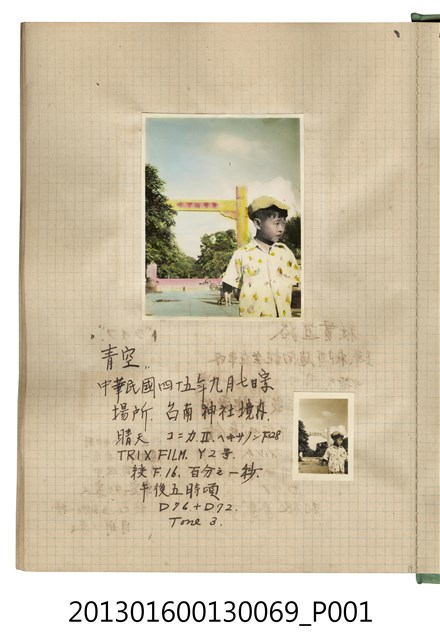 青空
中華民國四十五年九月七日
場所. 台南神社境内.
晴天 コニカⅡ. ヘキサノン F28
TRIX FILM. Y2号.
絞F.16. 百分之一秒.
午後五時頃
D76+D72.
Tone 3.
201301600130069_P001